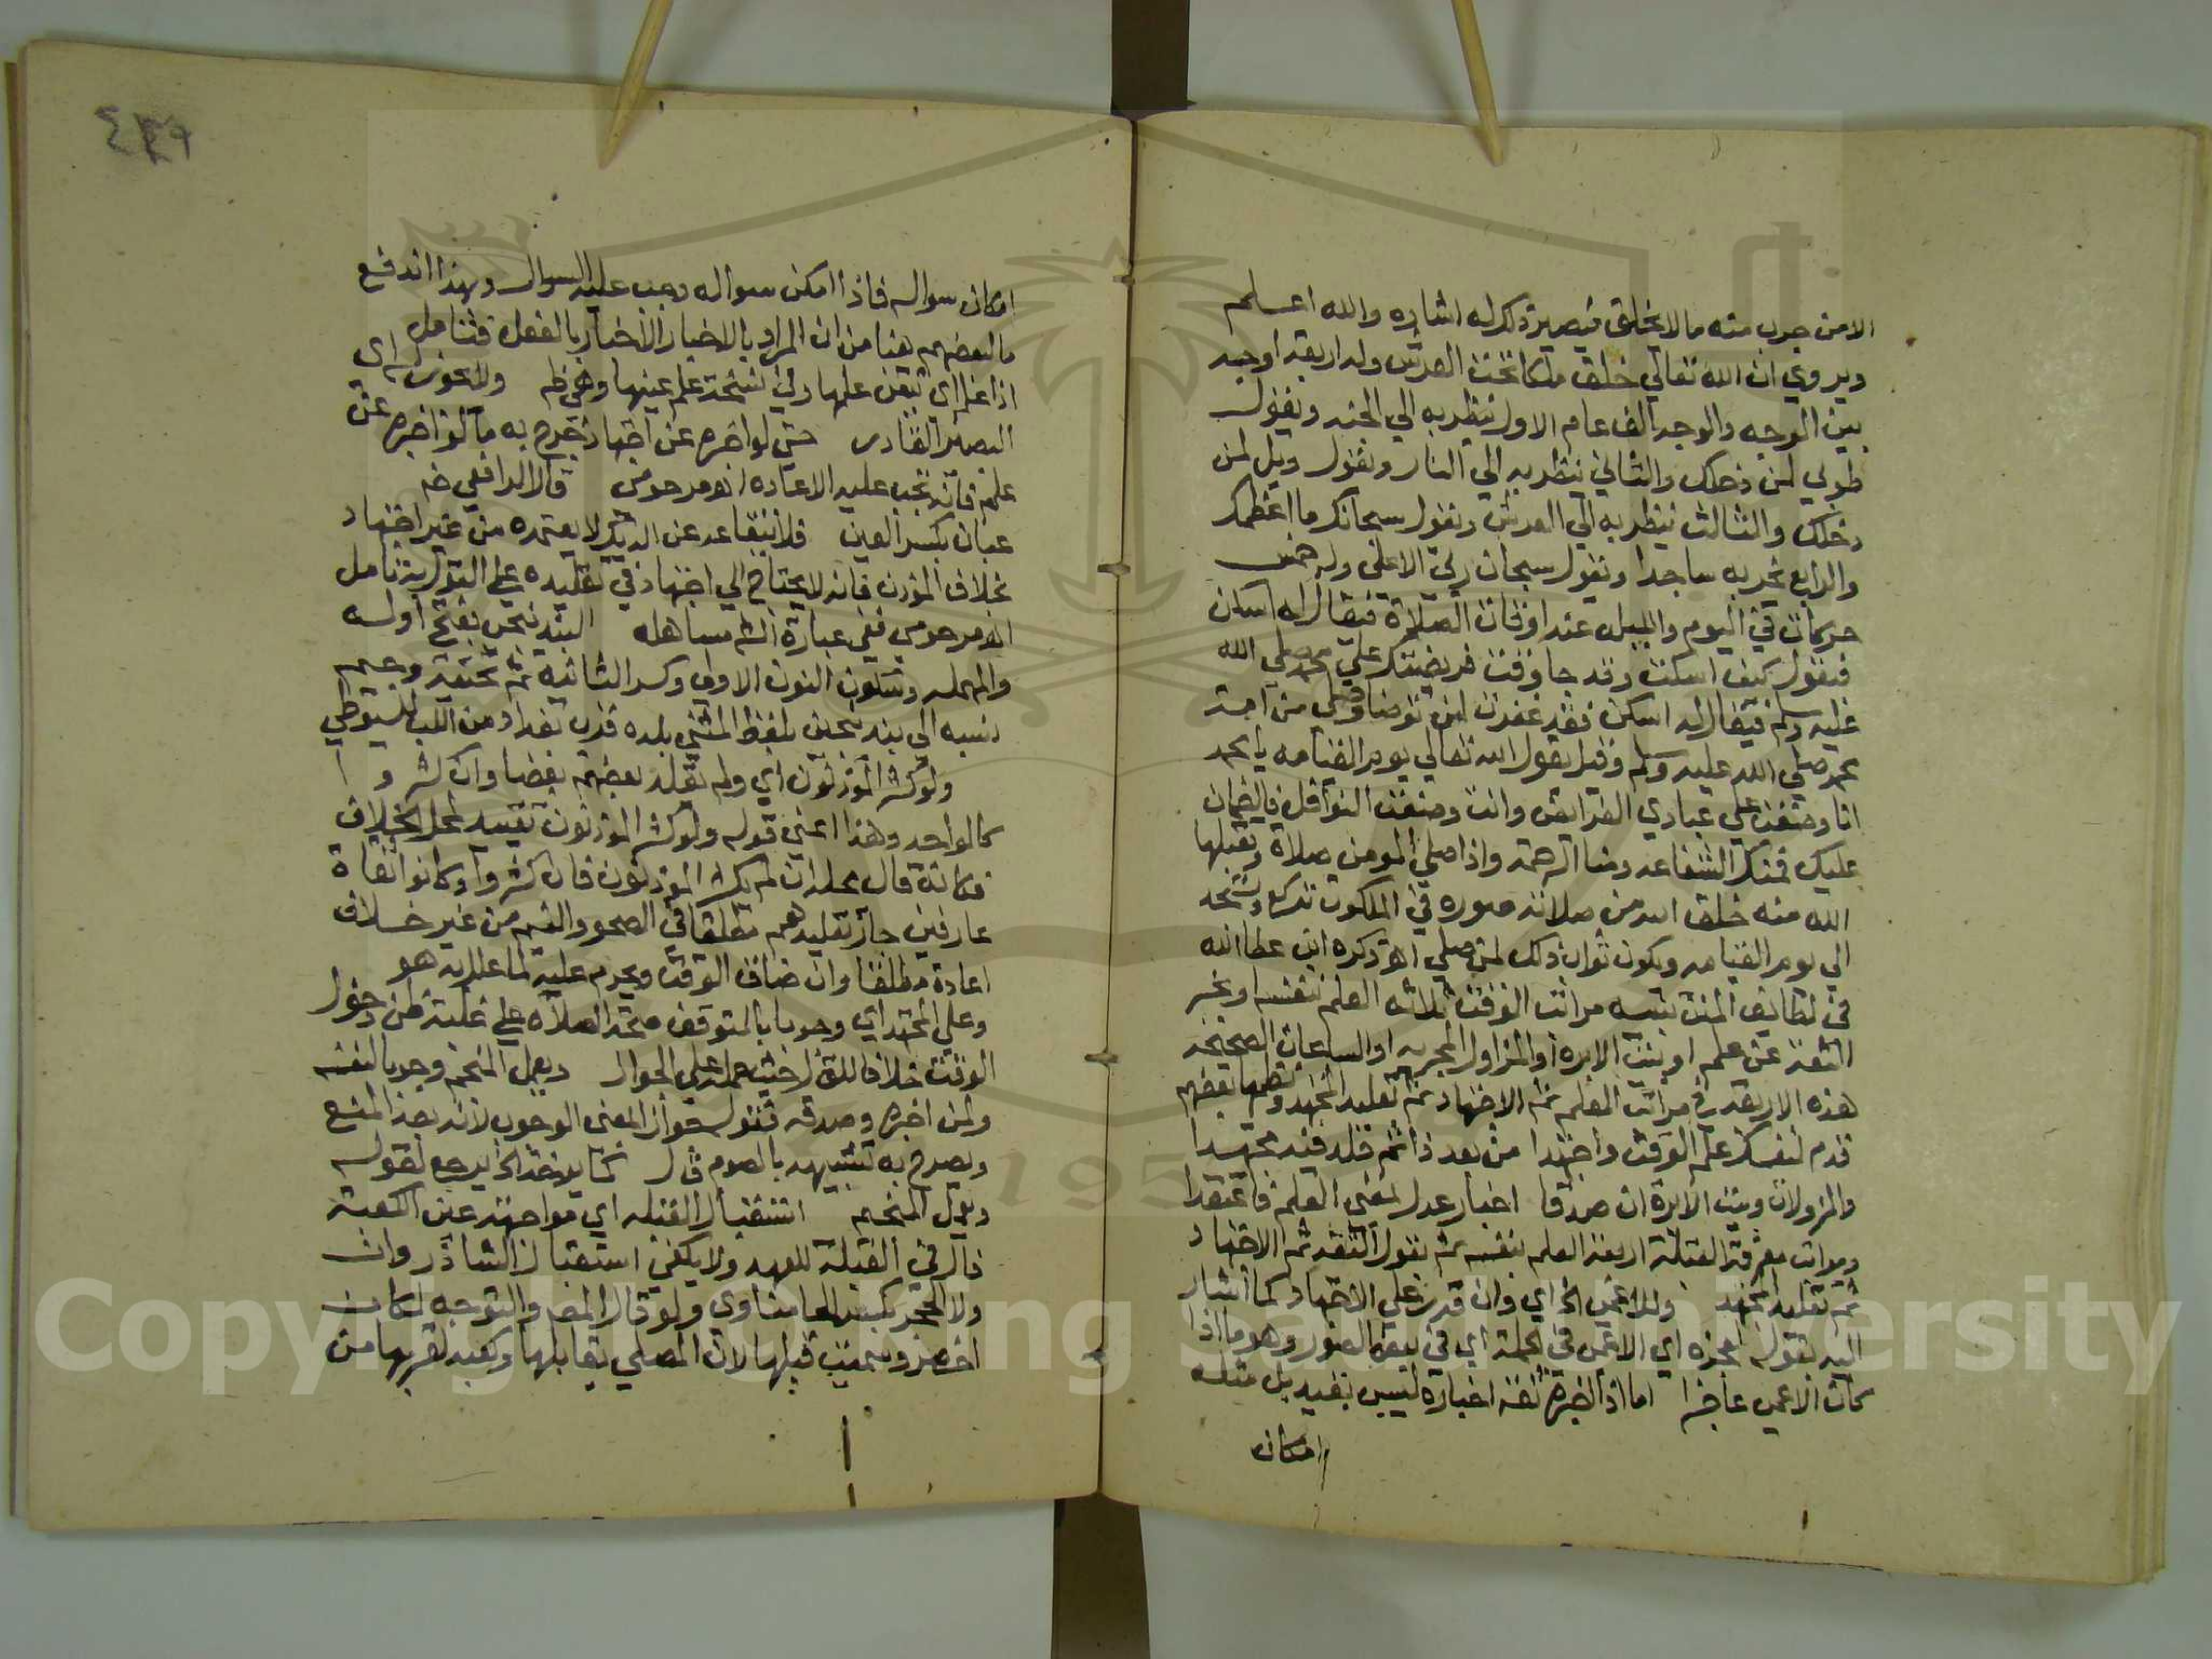 الا من جرب منه مالا يخلق فيصير ذكر له اشاره والله اعلم
ويروي ان الله تعالي خلق ملكا تحت العرش وله اربعة اوجه
بين الوجه والوجه الف عام الاول ينظر به الي الجنه ويقول
طوبي لمن دخلك والثاني ينظر به الي النار ويقول ويل لمن
دخلك والثالث ينظر به الي العرش ويقول سبحانك ما اعظمك
والرابع يخر به ساجدا ويقول سبحان ربي الاعلي وله خمس
حركات في اليوم والليل عند اوقات الصلاة فيقال له اسكن
فيقول كيف اسكن وقد جا وقت فريضتك علي محمد صلي الله
عليه وسلم فيقال له اسكن فقد غفرت لمن توضا وصلي من امة
محمد صلي الله عليه وسلم وقيل يقول الله تعالي يوم القيامه يا محمد
انا وضعت علي عبادي الفرايض وانت وضعت النوافل فالضمان
عليك فمنك الشفاعه ومنا الرحمة واذا صلي المومن صلاة وتقبلها
الله منه خلق الله من صلاته صوره في الملكوت تركع وتسجد
الي يوم القيامه ويكون ثواب ذلك لمن صلي اهـ ذكره ابن عطا الله
في لطايف المنن تنبيه مراتب الوقت ثلاثه العلم بنفسه او بخبر
الثقة عن علم او بيت الابره او المزاول المجربه او الساعات الصحيحه
هذه الاربعة في مراتب العلم ثم الاجتهاد ثم تقليد المجتهد ونظمها بعضهم
قدم لنفسك علم الوقت واجتهدا من بعد ذا ثم قلد فيه مجتهدا
والمزولات وبيت الابرة ان صدقا اخبار عدل لمعني العلم فاعتقدا
ومراتب معرفة القبلة اربعة العلم بنفسه ثم بقول الثقة ثم الاجتهاد
ثم تقليد المجتهد وللاعمي الخ اي وان قدر علي الاجتهاد كما اشار
اليه بقوله لعجزه اي الاعمي في الجملة اي في بعض الصور وهو ما اذا
كان الاعمي عاجزا اما اذا اخبره ثقه اخباره ليس بقيد بل مثله
امكان
٤٣٦
امكان سواله فاذا امكن سواله وجب عليه السوال وبهذا اندفع
ما لبعضهم هنا من ان المراد بالاخبار الاخبار بالفعل فتامل
اذا علم اي تيقن علمها وفي نسخة علم عينها وهي ظم ولا يجوز له اي
البصير القادر حتي لو اخبره عن اجتهاد خرج به ما لو اخبره عن
علم فانه تجب عليه الاعاده اهـ مرحومي قال الرافعي خه
عبان بكسر العين فلا يتقاعد عن الديك لا يعتمده من غير اجتهاد
بخلاف المؤذن فانه لا يحتاج الي اجتهاد في تقليده علي القول به تامل
اهـ مرحومي ففي عبارة الش مساهله البندنيجي بفتح اوله
والمهمله وسكون النون الاولي وكسر الثانيه ثم تحتية وجيم
نسبه الي بندنيجين بلفظ المثني بلده قرب بغداد من اللب للسيوطي
ولو كثر المؤذنون اي ولم يقلد بعضهم بعضا وان كثروا
كالواحد وهذا اعني قوله ولو كثر المؤذنون تقييد لمحل الخلاف
فكانه قال محله ان لم يكثر المؤذنون فان كثروا وكانوا ثقاة
عارفين جاز تقليدهم مطلقا في الصحو والغيم من غير خلاف
اعادة مطلقا وان ضاق الوقت ويحرم عليه لما علل به هو
وعلي المجتهد اي وجوبا بالمتوقف صحة الصلاة علي غلبة ظن دخول
الوقت خلافا حيث حمله علي الجواز ويعمل المنجم وجوبا لنفسه
ولمن اخبره وصدقه فقول جواز المعني الوجوب لانه بعد المنع
ويصرح به تشبيهه بالصوم قال كما يوخذ الخ يرجع لقوله
ويعمل المنجم استقبال القبله اي مواجهته عين الكعبة
فال في القبلة للعهد ولا يكفي استقبال الشاذروان
ولا الحجر مناوي ولو قال المص والتوجه لكان
اخصر وسميت قبلها لان المصلي يقابلها وكعبه لقربها من
Copyright © King Saud University
195